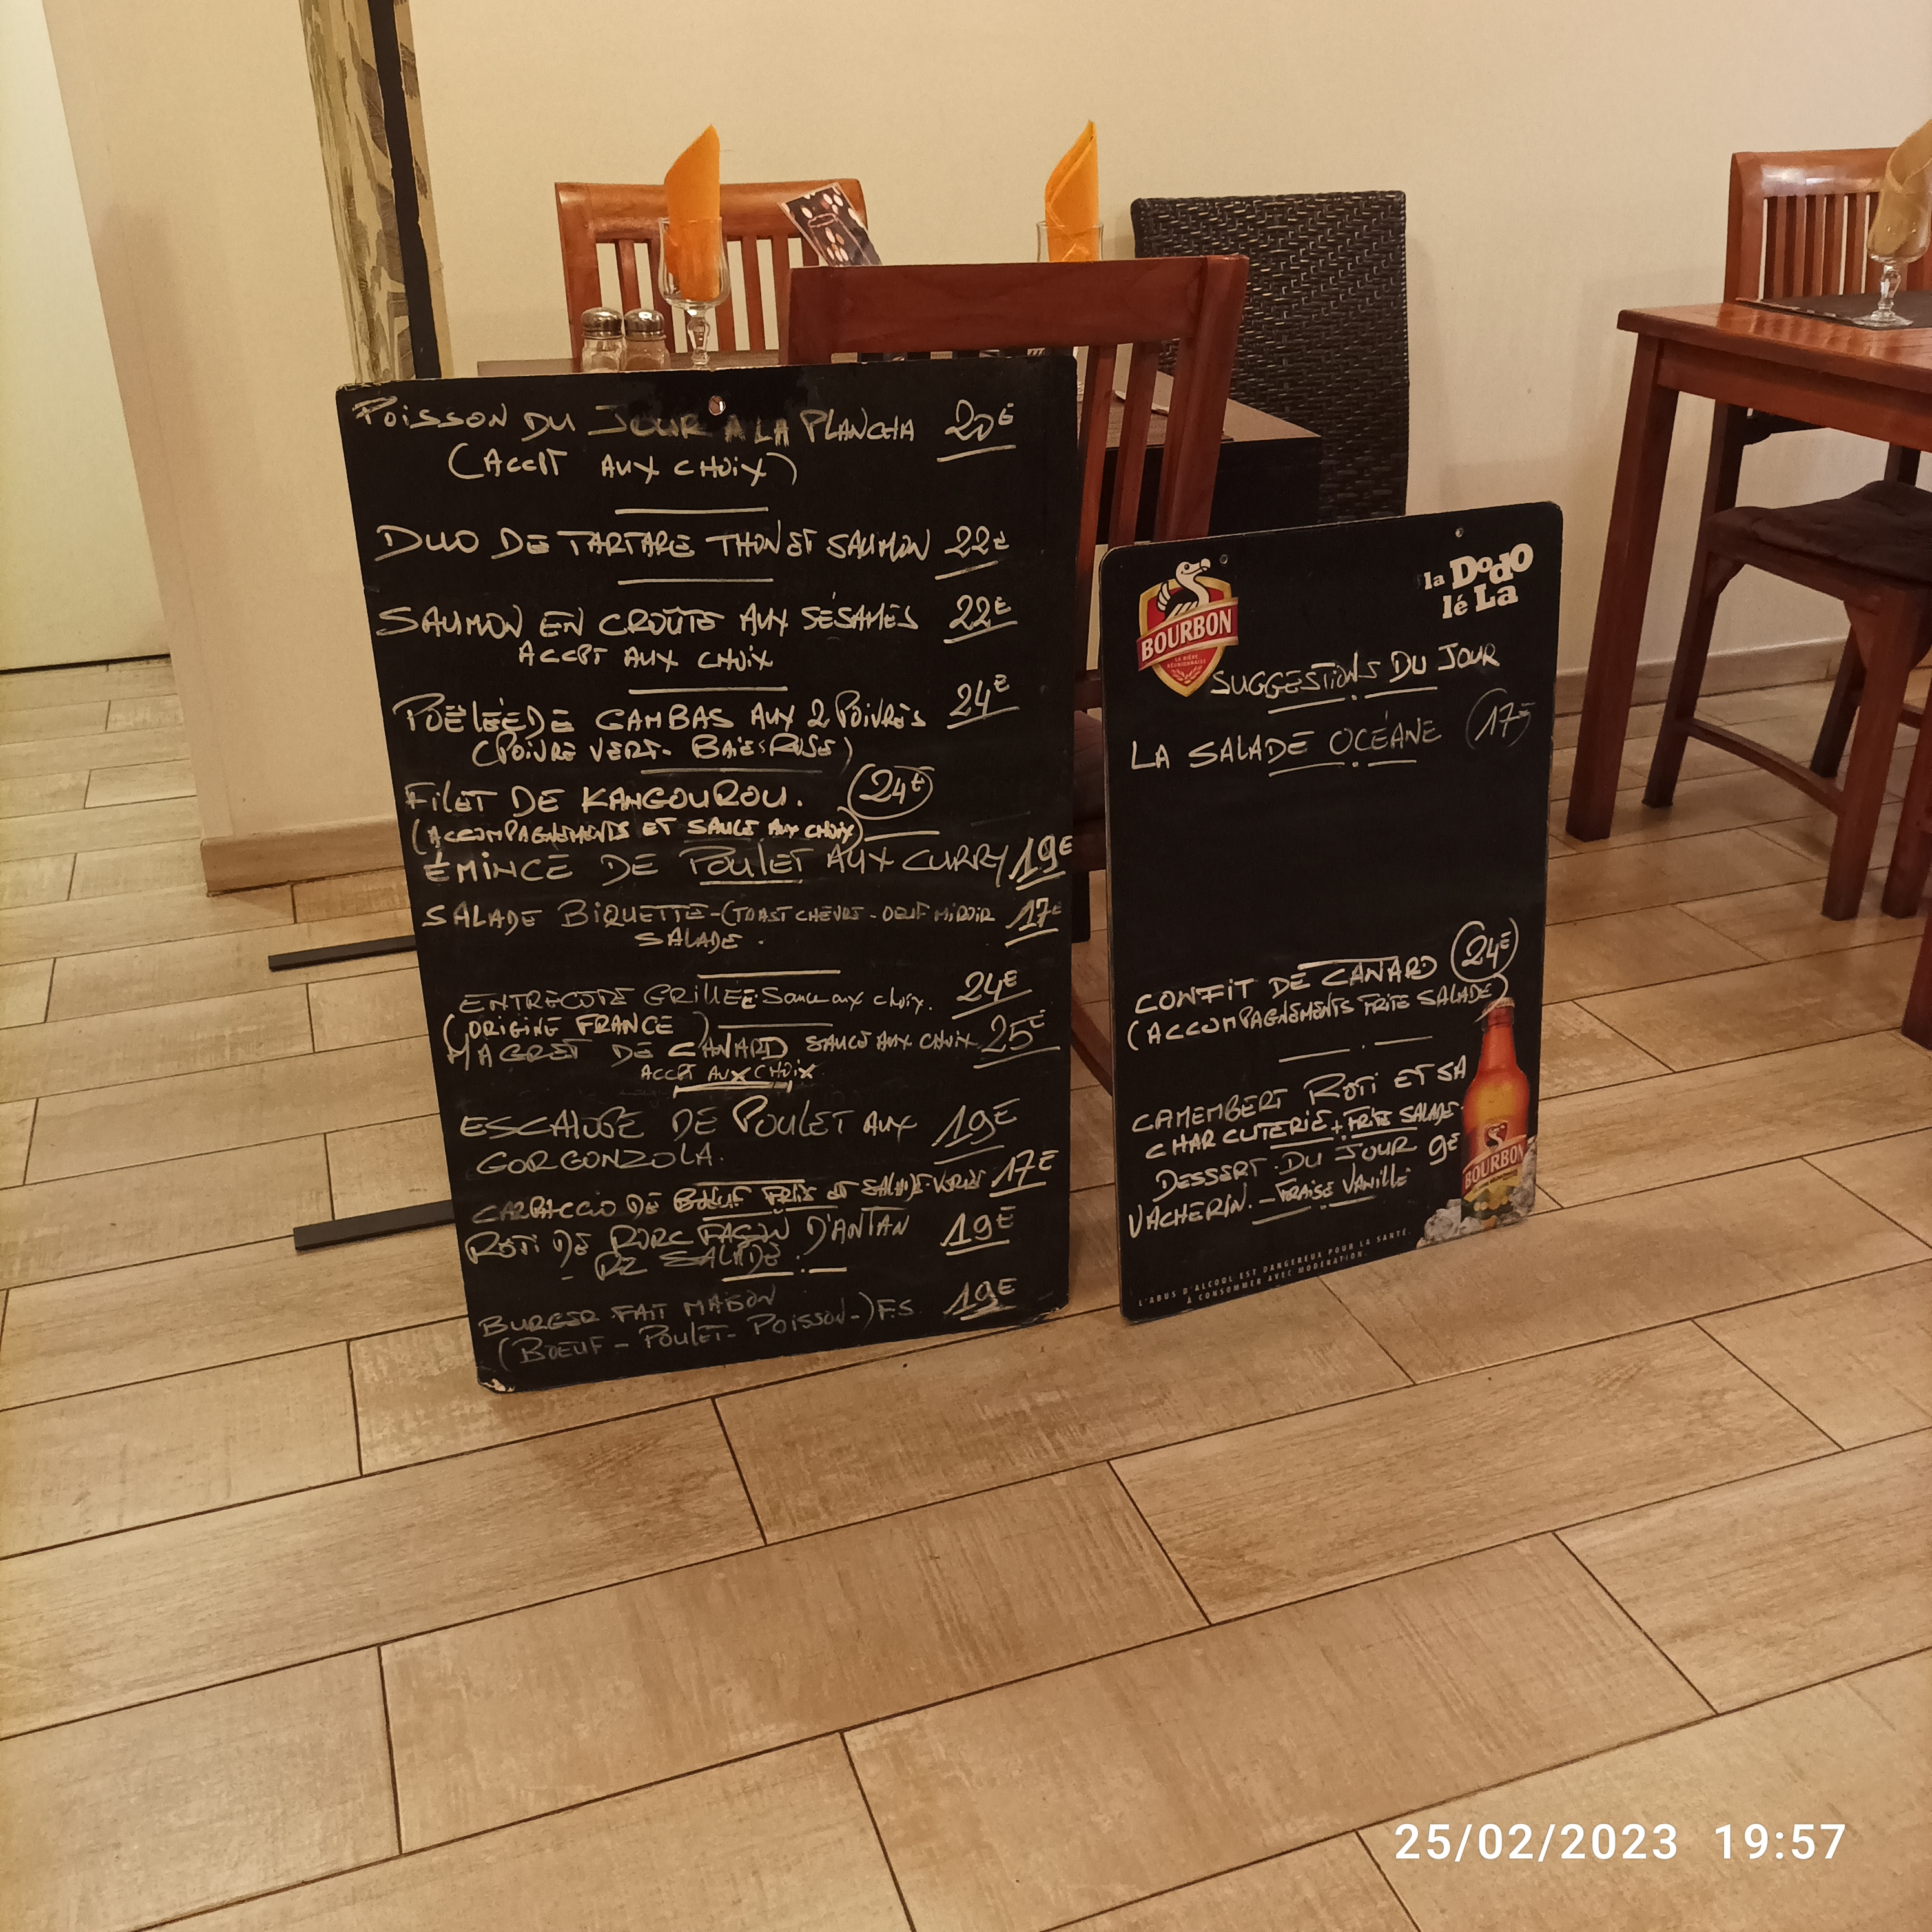 POISSON DU JOUR A LA PLANCHA 20€
(ACCPT AUX CHOIX)
DUO DE TARTARE THON ET SAUMON 22€
SAUMON EN CROÛTE AUX SÉSAMES 22€
ACCPT AUX CHOIX
POËLÉE DE GAMBAS AUX 2 POIVRES 24€
(POIVRE VERT - BAIES ROSE)
FILET DE KANGOUROU. 24€
(ACCOMPAGNEMENTS ET SAUCE AUX CHOIX)
ÉMINCE DE POULET AUX CURRY 19€
SALADE BIQUETTE - (TOAST CHEVRE - OEUF MIROIR 17€
SALADE.
ENTRECOTE GRILLÉE Sauce aux choix. 24€
(ORIGINE FRANCE)
MAGRET DE CANARD SAUCE AUX CHOIX 25€
ACCPT AUX CHOIX
ESCALOPE DE POULET AUX 19€
GORGONZOLA.
CARPACCIO DE BOEUF FRITE ET SALADE VERTE 17€
ROTI DE PORC FAÇON D'ANTAN 19€
- RZ SALADE.
BURGER FAIT MAISON 19€
(BOEUF - POULET - POISSON -) F.S
BOURBON
la Dodo
lé La
SUGGESTIONS DU JOUR
LA SALADE OCÉANE 17€
CONFIT DE CANARD 24€
(ACCOMPAGNEMENTS FRITE SALADE)
CAMEMBERT ROTI ET SA
CHARCUTERIE + FRITE SALADE.
DESSERT DU JOUR 9€
VACHERIN. - FRAISE VANILLE
BOURBON
L'ABUS D'ALCOOL EST DANGEREUX POUR LA SANTÉ.
À CONSOMMER AVEC MODÉRATION.
25/02/2023 19:57